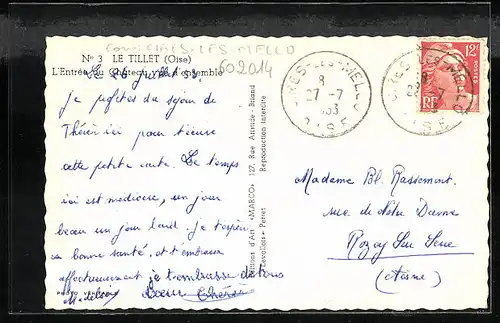 com: CIRES-LES-MELLO
602014
N° 3 LE TILLET (Oise)
L'Entrée du Château, vue d'ensemble
je profites du séjour de
Thérèse ici pour t'écrire
cette petite carte. Le temps
ici est médiocre, un jour
beau un jour laid. Je t'espère
en bonne santé, et t'embrasse
affectueusement je t'embrasse de tous
Cœur Thérèse
Éditions d'Art "MARCO", 127, Rue Aristide-Briand
Levallois-Perret
Reproduction interdite
CIRES-LES-MELLO
27-7
OISE
12F
RF
CIRES-LES-MELLO
OISE
Madame Bl. Rassemont
rue de Notre Dame
Rozoy Sur Serre
(Aisne)